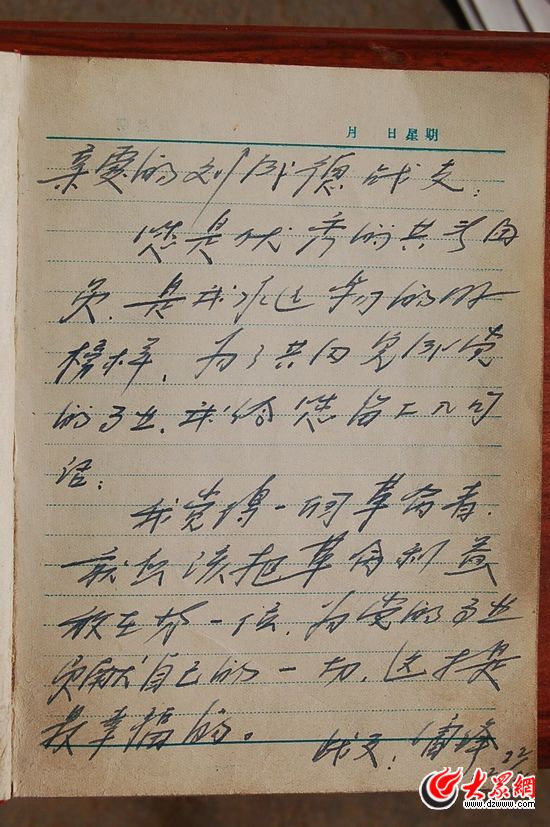 月 日 星期
亲爱的刘成德战友：
您是优秀的共青团
员，是我永远学习的好
榜样，为了共同完成党
的事业，我给您留上几句
话：
我觉得一個革命者，
就应该把革命利益
放在第一位，为党的事业
贡献自己的一切，这才是
最幸福的。
战友：雷锋
大众網
www.dzwww.com